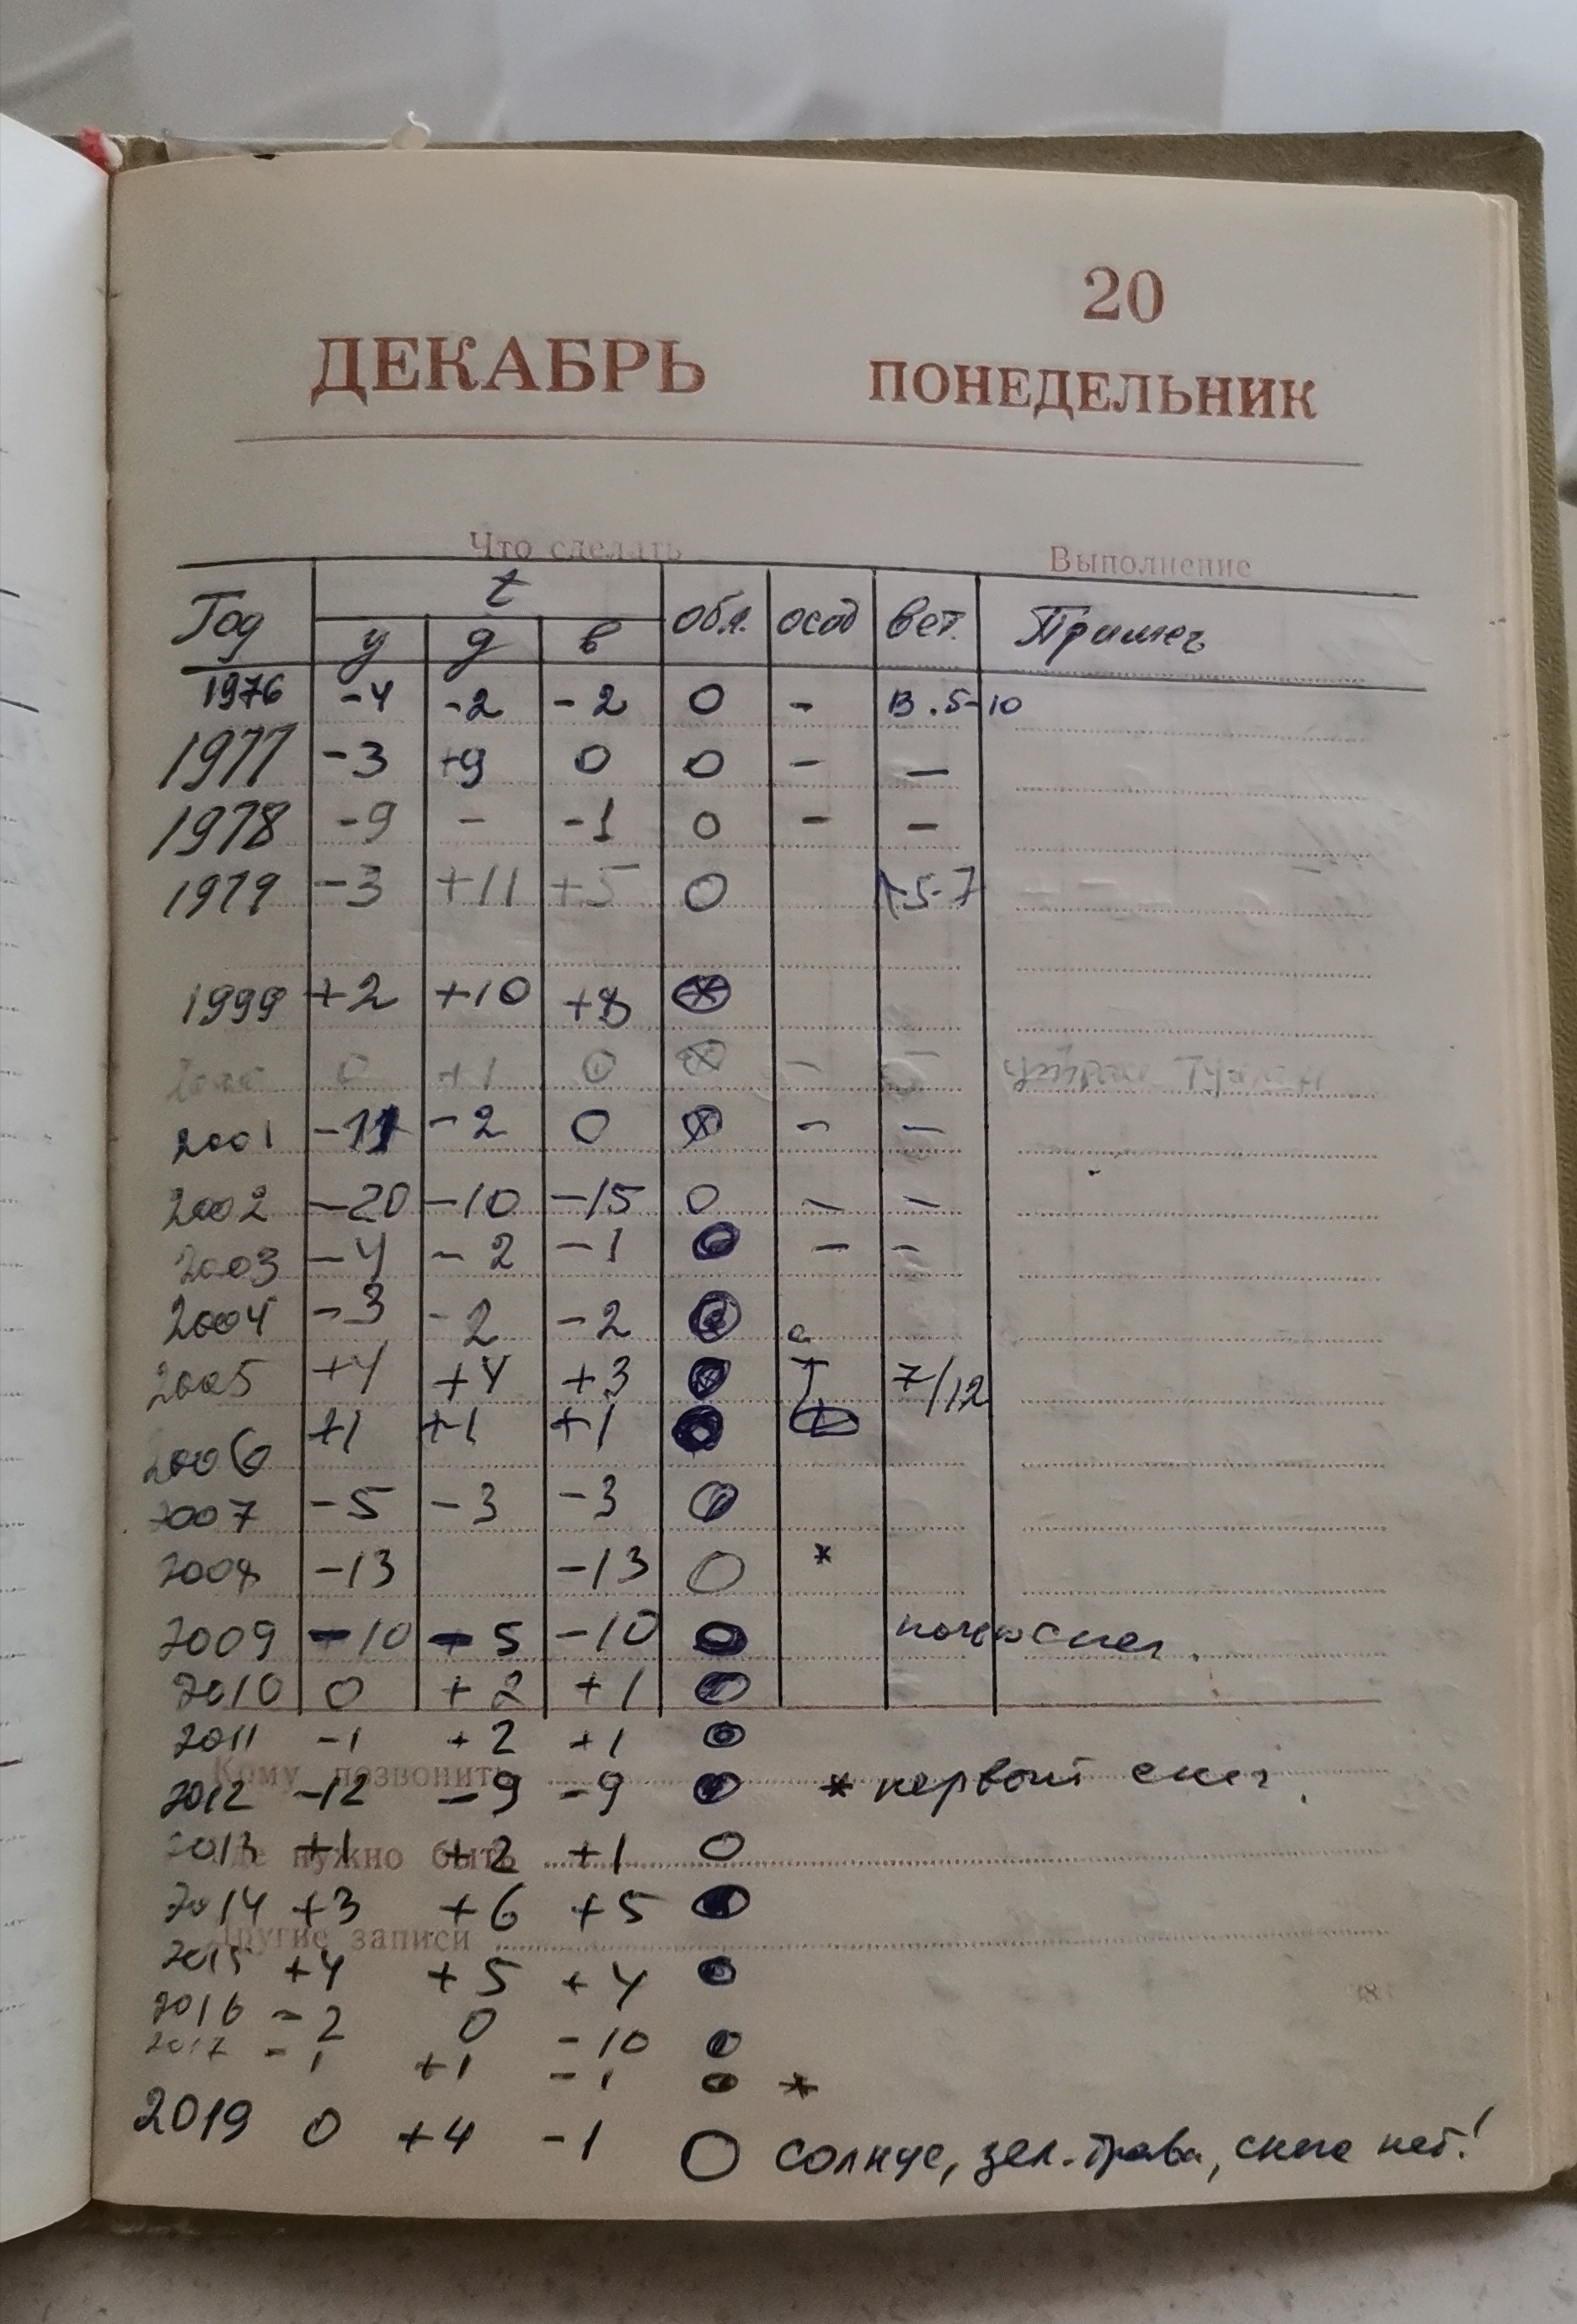 20
ДЕКАБРЬ ПОНЕДЕЛЬНИК
Что сделать Выполнение
Год t обл. осад вет. Примеч
у д в
1976 -4 -2 -2 О - В. 5-10
1977 -3 +9 0 О - -
1978 -9 - -1 О - -
1979 -3 +11 +5 О 5-7
1999 +2 +10 +8
2000 0 +1 0 - - утром туман
2001 -11 -2 0 - -
2002 -20 -10 -15 О - -
2003 -4 -2 -1 - -
2004 -3 -2 -2
2005 +4 +4 +3 7/12
2006 +1 +1 +1
2007 -5 -3 -3
2008 -13 -13 О *
2009 -10 -5 -10 ночью снег.
2010 0 +2 +1
2011 -1 +2 +1
Кому позвонить
2012 -12 -9 -9 * первый снег.
2013 +1 +2 +1 О
Где нужно быть
2014 +3 +6 +5
Другие записи
2015 +4 +5 +4
2016 -2 0 -10
2017 -1 +1 -1 *
2019 0 +4 -1 О солнце, зел. трава, снега нет!